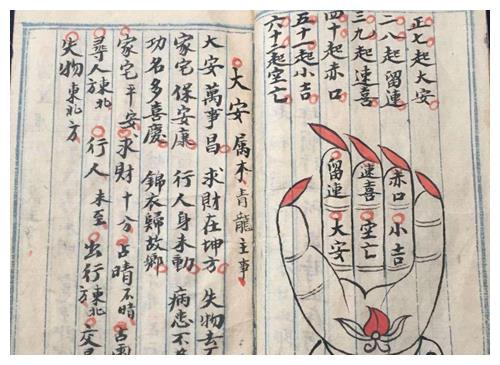 正七起大安
二八起留連
三九起速喜
四十起赤口
五十一起小吉
六十二起空亡
赤口
速喜
留連
小吉
空亡
大安
大安 属木 青龍主事
大安萬事昌 求財在坤方 失物去
家宅保安康 行人身未動 病患不
功名多喜慶 錦衣歸故鄉
家宅平安 求財十分 占晴不晴 占雨
尋人東北方 行人未至 出行東北方 交
失物東北方